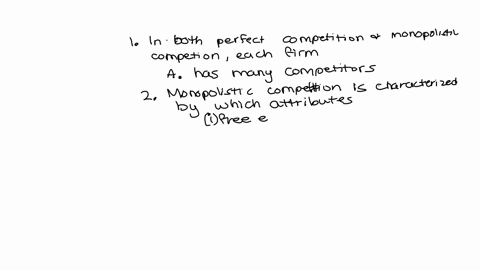 1. In both perfect competition & monopolistic
competion, each firm
A. has many competitors
2. Monopolistic competition is characterized
by which attributes
(i) free e